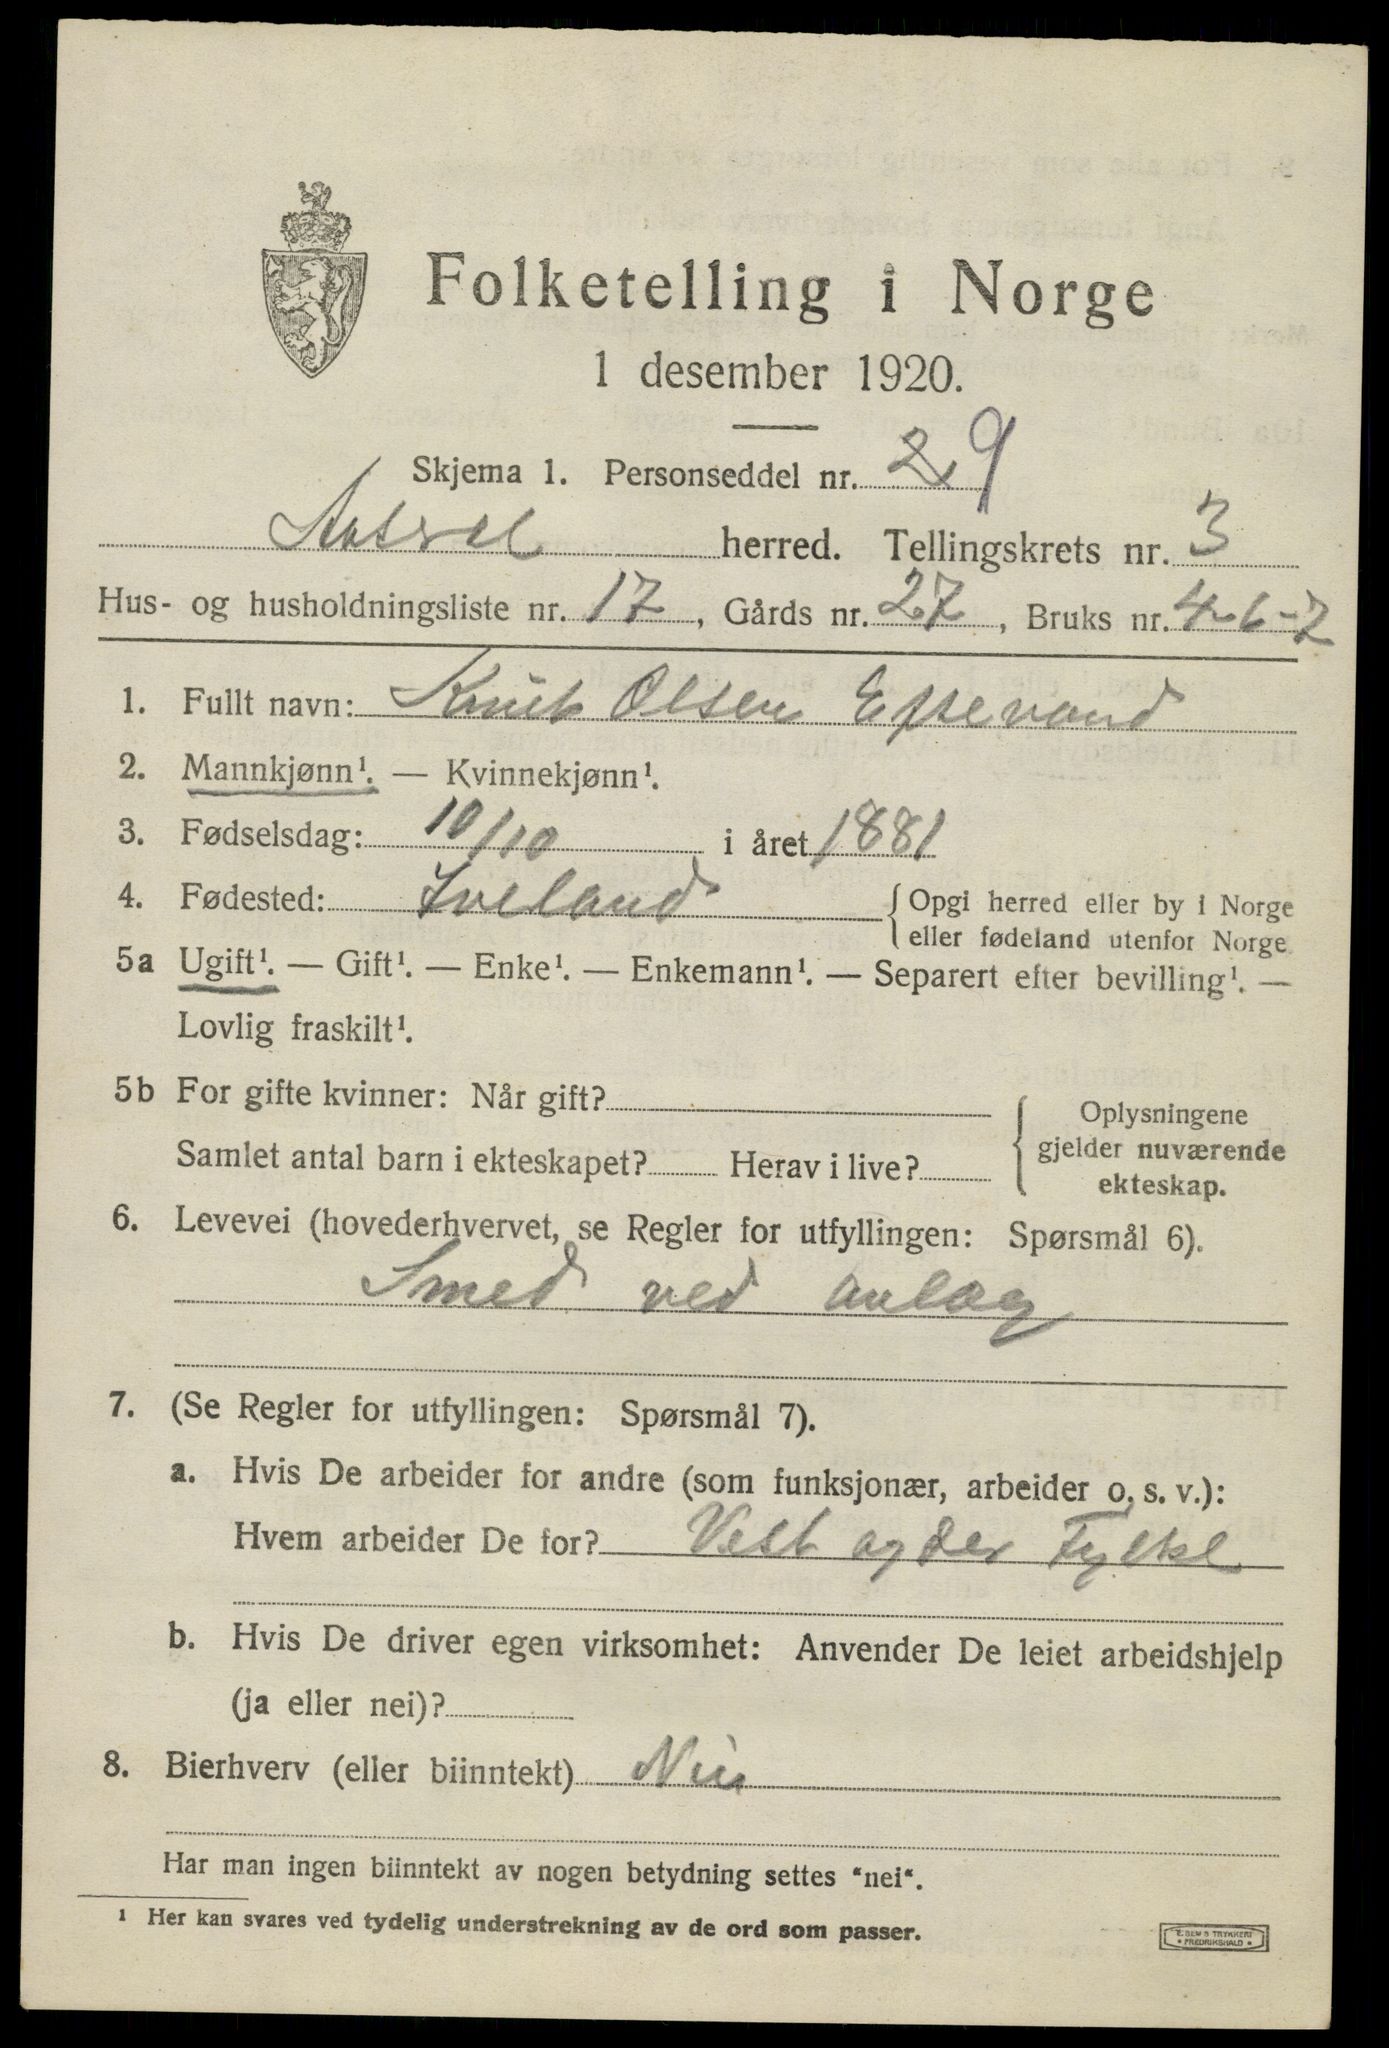 Folketelling i Norge
1 desember 1920.
Skjema 1. Personseddel nr. 9
herred. Tellingskrets nr. 3
Hus- og husholdningsliste nr. 17, Gårds nr. 27, Bruks nr. 4-6-7
1. Fullt navn: Knut Olsen
2. Mannkjønn¹. — Kvinnekjønn¹.
3. Fødselsdag: 10/10 i året 1881
4. Fødested: Iveland { Opgi herred eller by i Norge
eller fødeland utenfor Norge
5a Ugift¹. — Gift¹. — Enke¹. — Enkemann¹. — Separert efter bevilling¹. —
Lovlig fraskilt¹.
5b For gifte kvinner: Når gift?
Samlet antal barn i ekteskapet? Herav i live?
{ Oplysningene
gjelder nuværende
ekteskap.
6. Levevei (hovederhvervet, se Regler for utfyllingen: Spørsmål 6).
Smed ved anlæg
7. (Se Regler for utfyllingen: Spørsmål 7).
a. Hvis De arbeider for andre (som funksjonær, arbeider o. s. v.):
Hvem arbeider De for? Vest agder Fylke
b. Hvis De driver egen virksomhet: Anvender De leiet arbeidshjelp
(ja eller nei)?
8. Bierhverv (eller biinntekt) Nei
Har man ingen biinntekt av nogen betydning settes "nei".
¹ Her kan svares ved tydelig understrekning av de ord som passer.
E. SEM'S TRYKKERI
• FREDRIKSHALD •